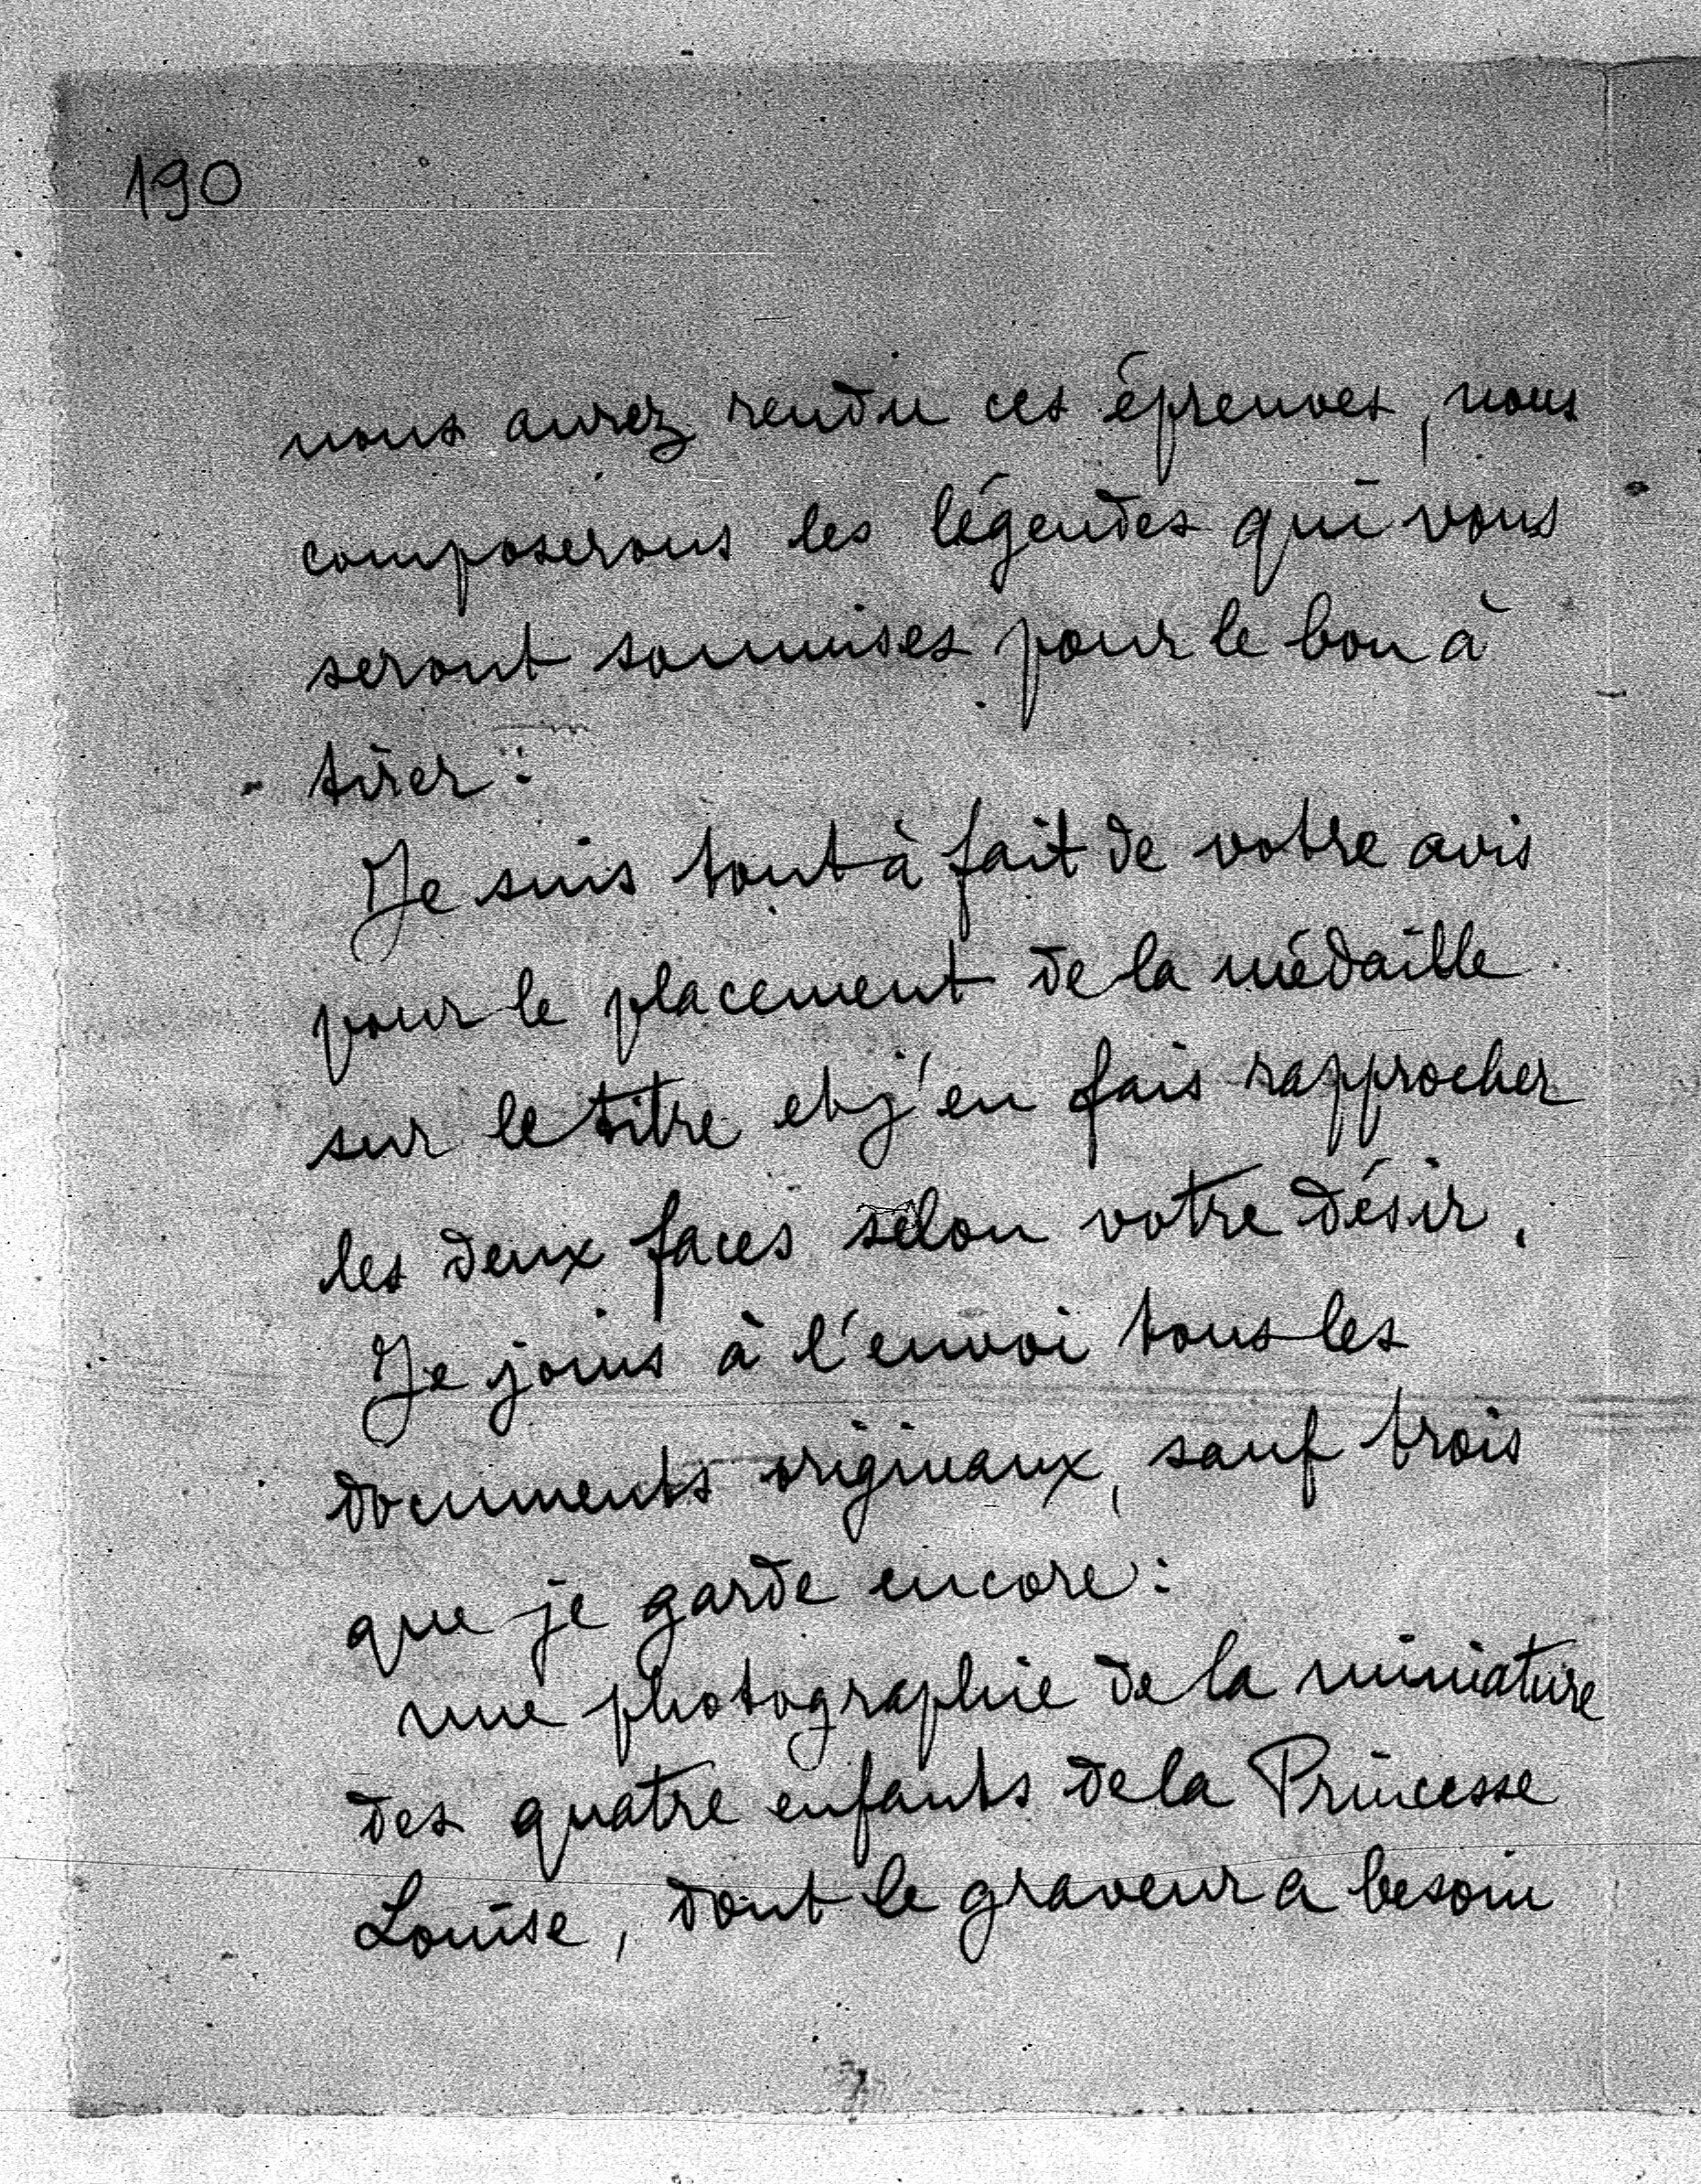 190
nous aurez rendu ces épreuves, nous
composerons les légendes qui vous
seront soumises pour le bon à
tirer :
Je suis tout à fait de votre avis
pour le placement de la médaille
sur le titre et j'en fais rapprocher
les deux faces selon votre désir.
Je joins à l'envoi tous les
documents originaux, sauf trois
que je garde encore :
une photographie de la miniature
des quatre enfants de la Princesse
Louise, dont le graveur a besoin